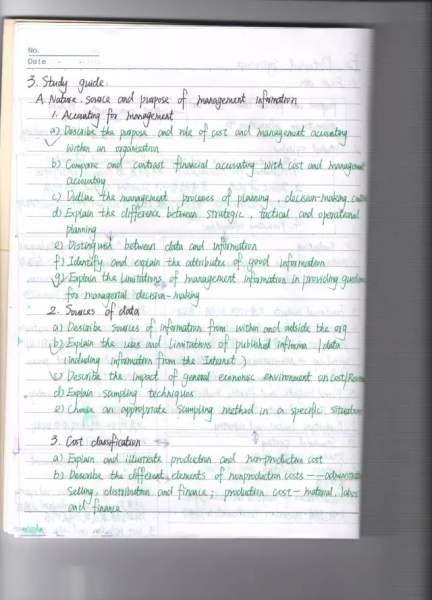 No.
Date
3. Study guide:
A. Nature, source and purpose of management information
1. Accounting for management
a) Describe the purpose and role of cost and management accounting
within an organisation
b) Compare and contrast financial accounting with cost and management
accounting
c) Outline the management processes of planning, decision-making,
d) Explain the difference between strategic, tactical and operational
planning
e) Distinguish between data and information
f) Identify and explain the attributes of good information
g) Explain the limitations of management information in providing
for managerial decision-making
2. Sources of data
a) Describe sources of information from within and outside the org.
b) Explain the uses and limitations of published / data
(including information from the Internet)
c) Describe the impact of general economic environment on cost/
d) Explain sampling techniques
e) Choose an appropriate sampling method in a specific situation
3. Cost classification
a) Explain and illustrate production and non-production cost
b) Describe the different elements of nonproduction costs —
Selling, distribution and finance; production cost - material, labor
and finance